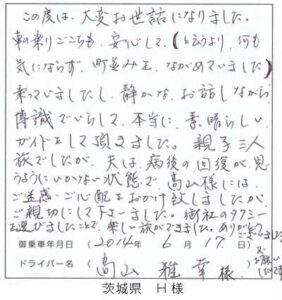 この度は、大変お世話になりました。
車の乗りごこちも、安心して、(と云うより、何も
気にならず、町並みを、ながめていました)
乗っていましたし、静かな、お話しながら
博識でいらして、本当に、素晴らしい
ガイドをして頂きました。親子三人
旅でしたが、夫は、病後の回復が、思
うようにいかない状態で、高山様には、
ご迷惑・ご心配をおかけ致しましたが
ご親切にして下さいました。御社のタクシー
を選びましたことで、楽しい旅ができました。ありがとう
ございました
御乗車年月日(2014年 6月 17日)
ドライバー名(高山 雅幸 様)
茨城県 H様